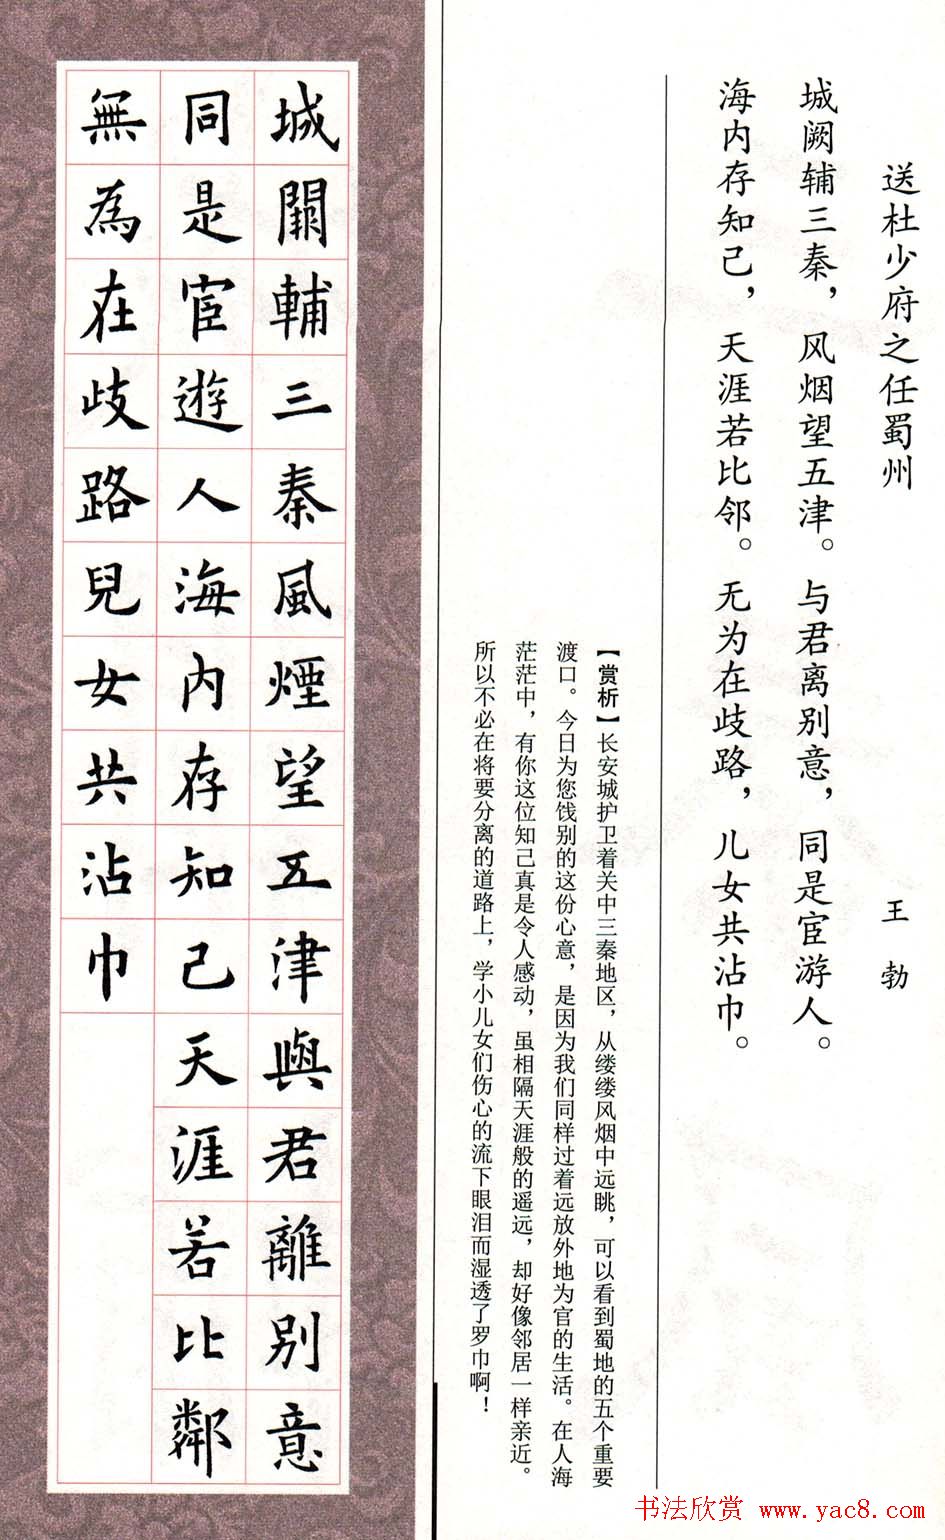 送杜少府之任蜀州
王勃
城阙辅三秦，风烟望五津。与君离别意，同是宦游人。
海内存知己，天涯若比邻。无为在歧路，儿女共沾巾。
【赏析】长安城护卫着关中三秦地区，从缕缕风烟中远眺，可以看到蜀地的五个重要
渡口。今日为您饯别的这份心意，是因为我们同样过着远放外地为官的生活。在人海
茫茫中，有你这位知己真是令人感动，虽相隔天涯般的遥远，却好像邻居一样亲近。
所以不必在将要分离的道路上，学小儿女们伤心的流下眼泪而湿透了罗巾啊！
城闕輔三秦風煙望五津與君離別意
同是宦遊人海内存知己天涯若比鄰
無為在歧路兒女共沾巾
书法欣赏 www.yac8.com